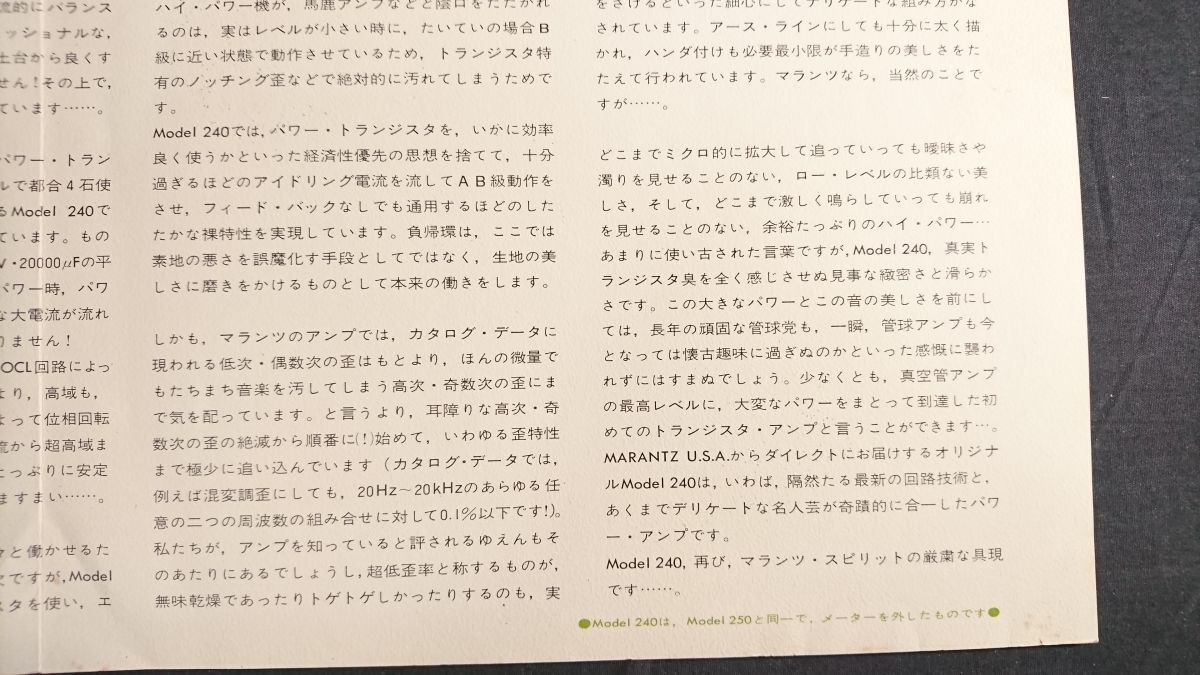 流的にバランス
ッショナルな,
土台から良くす
せん!その上で,
ています……。
パワー・トラン
ルで都合4石使
るModel 240で
ています。もの
V・20000μFの平
パワー時, パワ
な大電流が流れ
りません!
OCL回路によっ
より, 高域も,
よって位相回転
流から超高域ま
たっぷりに安定
ますまい……。
々と働かせるた
欠ですが, Model
スタを使い, エ
ハイ・パワー機が, 馬鹿アンプなどと陰口をたたかれ
るのは, 実はレベルが小さい時に, たいていの場合B
級に近い状態で動作させているため, トランジスタ特
有のノッチング歪などで絶対的に汚れてしまうためで
す。
Model 240では, パワー・トランジスタを, いかに効率
良く使うかといった経済性優先の思想を捨てて, 十分
過ぎるほどのアイドリング電流を流してAB級動作を
させ, フィード・バックなしでも通用するほどのした
たかな裸特性を実現しています。負帰環は, ここでは
素地の悪さを誤魔化す手段としてではなく, 生地の美
しさに磨きをかけるものとして本来の働きをします。
しかも, マランツのアンプでは, カタログ・データに
現われる低次・偶数次の歪はもとより, ほんの微量で
もたちまち音楽を汚してしまう高次・奇数次の歪にま
で気を配っています。と言うより, 耳障りな高次・奇
数次の歪の絶滅から順番に(!)始めて, いわゆる歪特性
まで極少に追い込んでいます(カタログ・データでは,
例えば混変調歪にしても, 20Hz〜20kHzのあらゆる任
意の二つの周波数の組み合せに対して0.1%以下です!)。
私たちが, アンプを知っていると評されるゆえんもそ
のあたりにあるでしょうし, 超低歪率と称するものが,
無味乾燥であったりトゲトゲしかったりするのも, 実
をさけるといった細心にしてデリケートな組み方がな
されています。アース・ラインにしても十分に太く描
かれ, ハンダ付けも必要最小限が手造りの美しさをた
たえて行われています。マランツなら, 当然のことで
すが……。
どこまでミクロ的に拡大して追っていっても曖昧さや
濁りを見せることのない, ロー・レベルの比類ない美
しさ, そして, どこまで激しく鳴らしていっても崩れ
を見せることのない, 余裕たっぷりのハイ・パワー…
あまりに使い古された言葉ですが, Model 240, 真実ト
ランジスタ臭を全く感じさせぬ見事な緻密さと滑らか
さです。この大きなパワーとこの音の美しさを前にし
ては, 長年の頑固な管球党も, 一瞬, 管球アンプも今
となっては懐古趣味に過ぎぬのかといった感慨に襲わ
れずにはすまぬでしょう。少なくとも, 真空管アンプ
の最高レベルに, 大変なパワーをまとって到達した初
めてのトランジスタ・アンプと言うことができます…。
MARANTZ U.S.A.からダイレクトにお届けするオリジナ
ルModel 240は, いわば, 隔然たる最新の回路技術と,
あくまでデリケートな名人芸が奇蹟的に合一したパワ
ー・アンプです。
Model 240, 再び, マランツ・スピリットの厳粛な具現
です……。
●Model 240は, Model 250と同一で, メーターを外したものです●